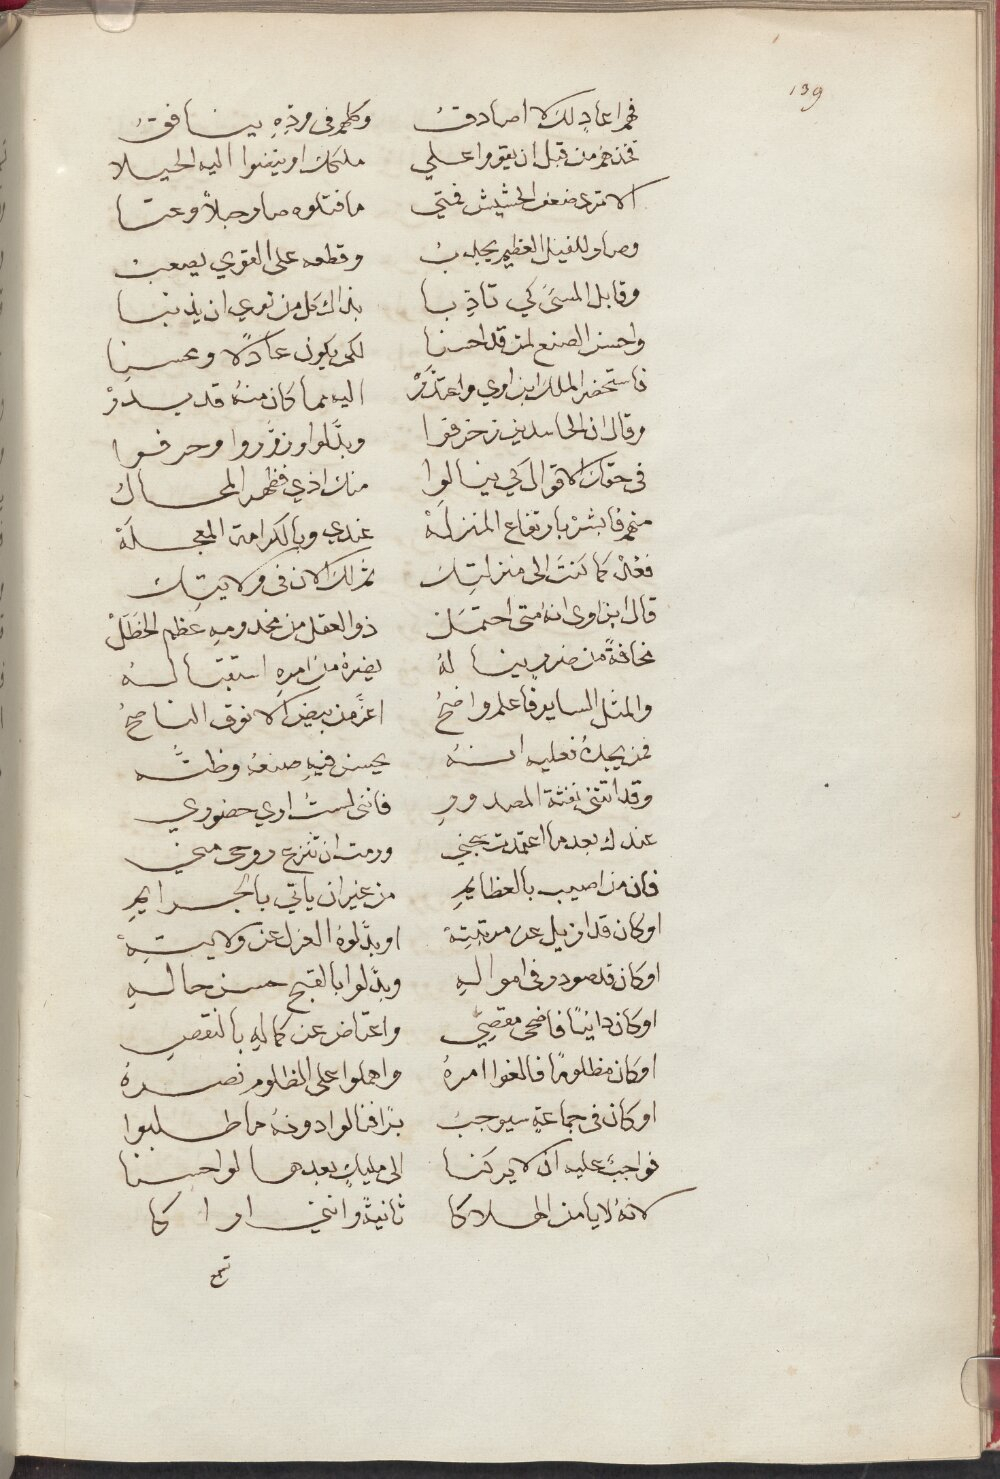 139
فهم اعادٍ لك لا اصادقُ وكلهم في ودِّهِ ينافقُ
فخذهم من قبل ان يقووا على ملكك او يبتغوا اليه الحيلا
الا ترى ضعف الحشيش فمتى ما فتلوه صار حبلاً وعتا
وصار للفيل العظيم يجذبُ وقطعه على القوي يصعبُ
وقابل المسئَ كي تادِّبا بذاك كل من نوى ان يذنبا
واحسن الصنع لمن قد احسنا لكي يكون عادلًا ومحسنا
فاستحضر الملك ابن اوي واعتذَرْ اليه مما كان منهُ قد بدرْ
وقال ان الحاسدين زخرفوا وبدَّلوا وزوَّروا وحرفوا
في حقك الاقوال كي ينالوا منك اذي فظهر المحالُ
منهم فابشرْ بارتفاع المنزلَهْ عندي وبالكرامة المعجلَهْ
فعُدْ كما كنتَ الى منزلتِكَ ثم لك الان في ولايتِك
قال ابن اوى انه متى احتمَلْ ذو العقل من مخدومهِ عظم الخطَلْ
مخافةً من ضررٍ ينالهُ يضرهُ من امرهِ استقبالهُ
والمثل الساير فاعلم واضحُ اعزُّ من بيض الانوق الناصحُ
فمن يجدهُ فعليه انهُ يحسن فيهِ صنعهُ وظنَّه
وقد اتتني نفثة المصدورِ فانني لستُ اري حضوري
عندك بعد ما اعتمدت يجني ورمت ان تنزع روحي مني
فان من اصيب بالعظايمِ من غير ان ياتي بالجرايمِ
او كان قد ازيل عن مرتبتِهْ او بدَّلوهُ العزل عن ولايتِهْ
او كان قد صودر في اموالهِ وبدَّلوا بالقبح حسن حالهِ
او كان دانيًا فاضحى مقصِي واعتاض عن كمالهِ بالنقصِ
او كان مظلومًا فالغوا امرهُ واهملوا على الظلوم نصرهُ
او كان في جماعةٍ سيوجبُ فنالوا دونهُ ما طلبوا
فواجبٌ عليه ان لا يركنا الى مليكٍ بعدها لو احسنا
لانهُ لا يامن الهلاكا ثانيةً وانني اراكا